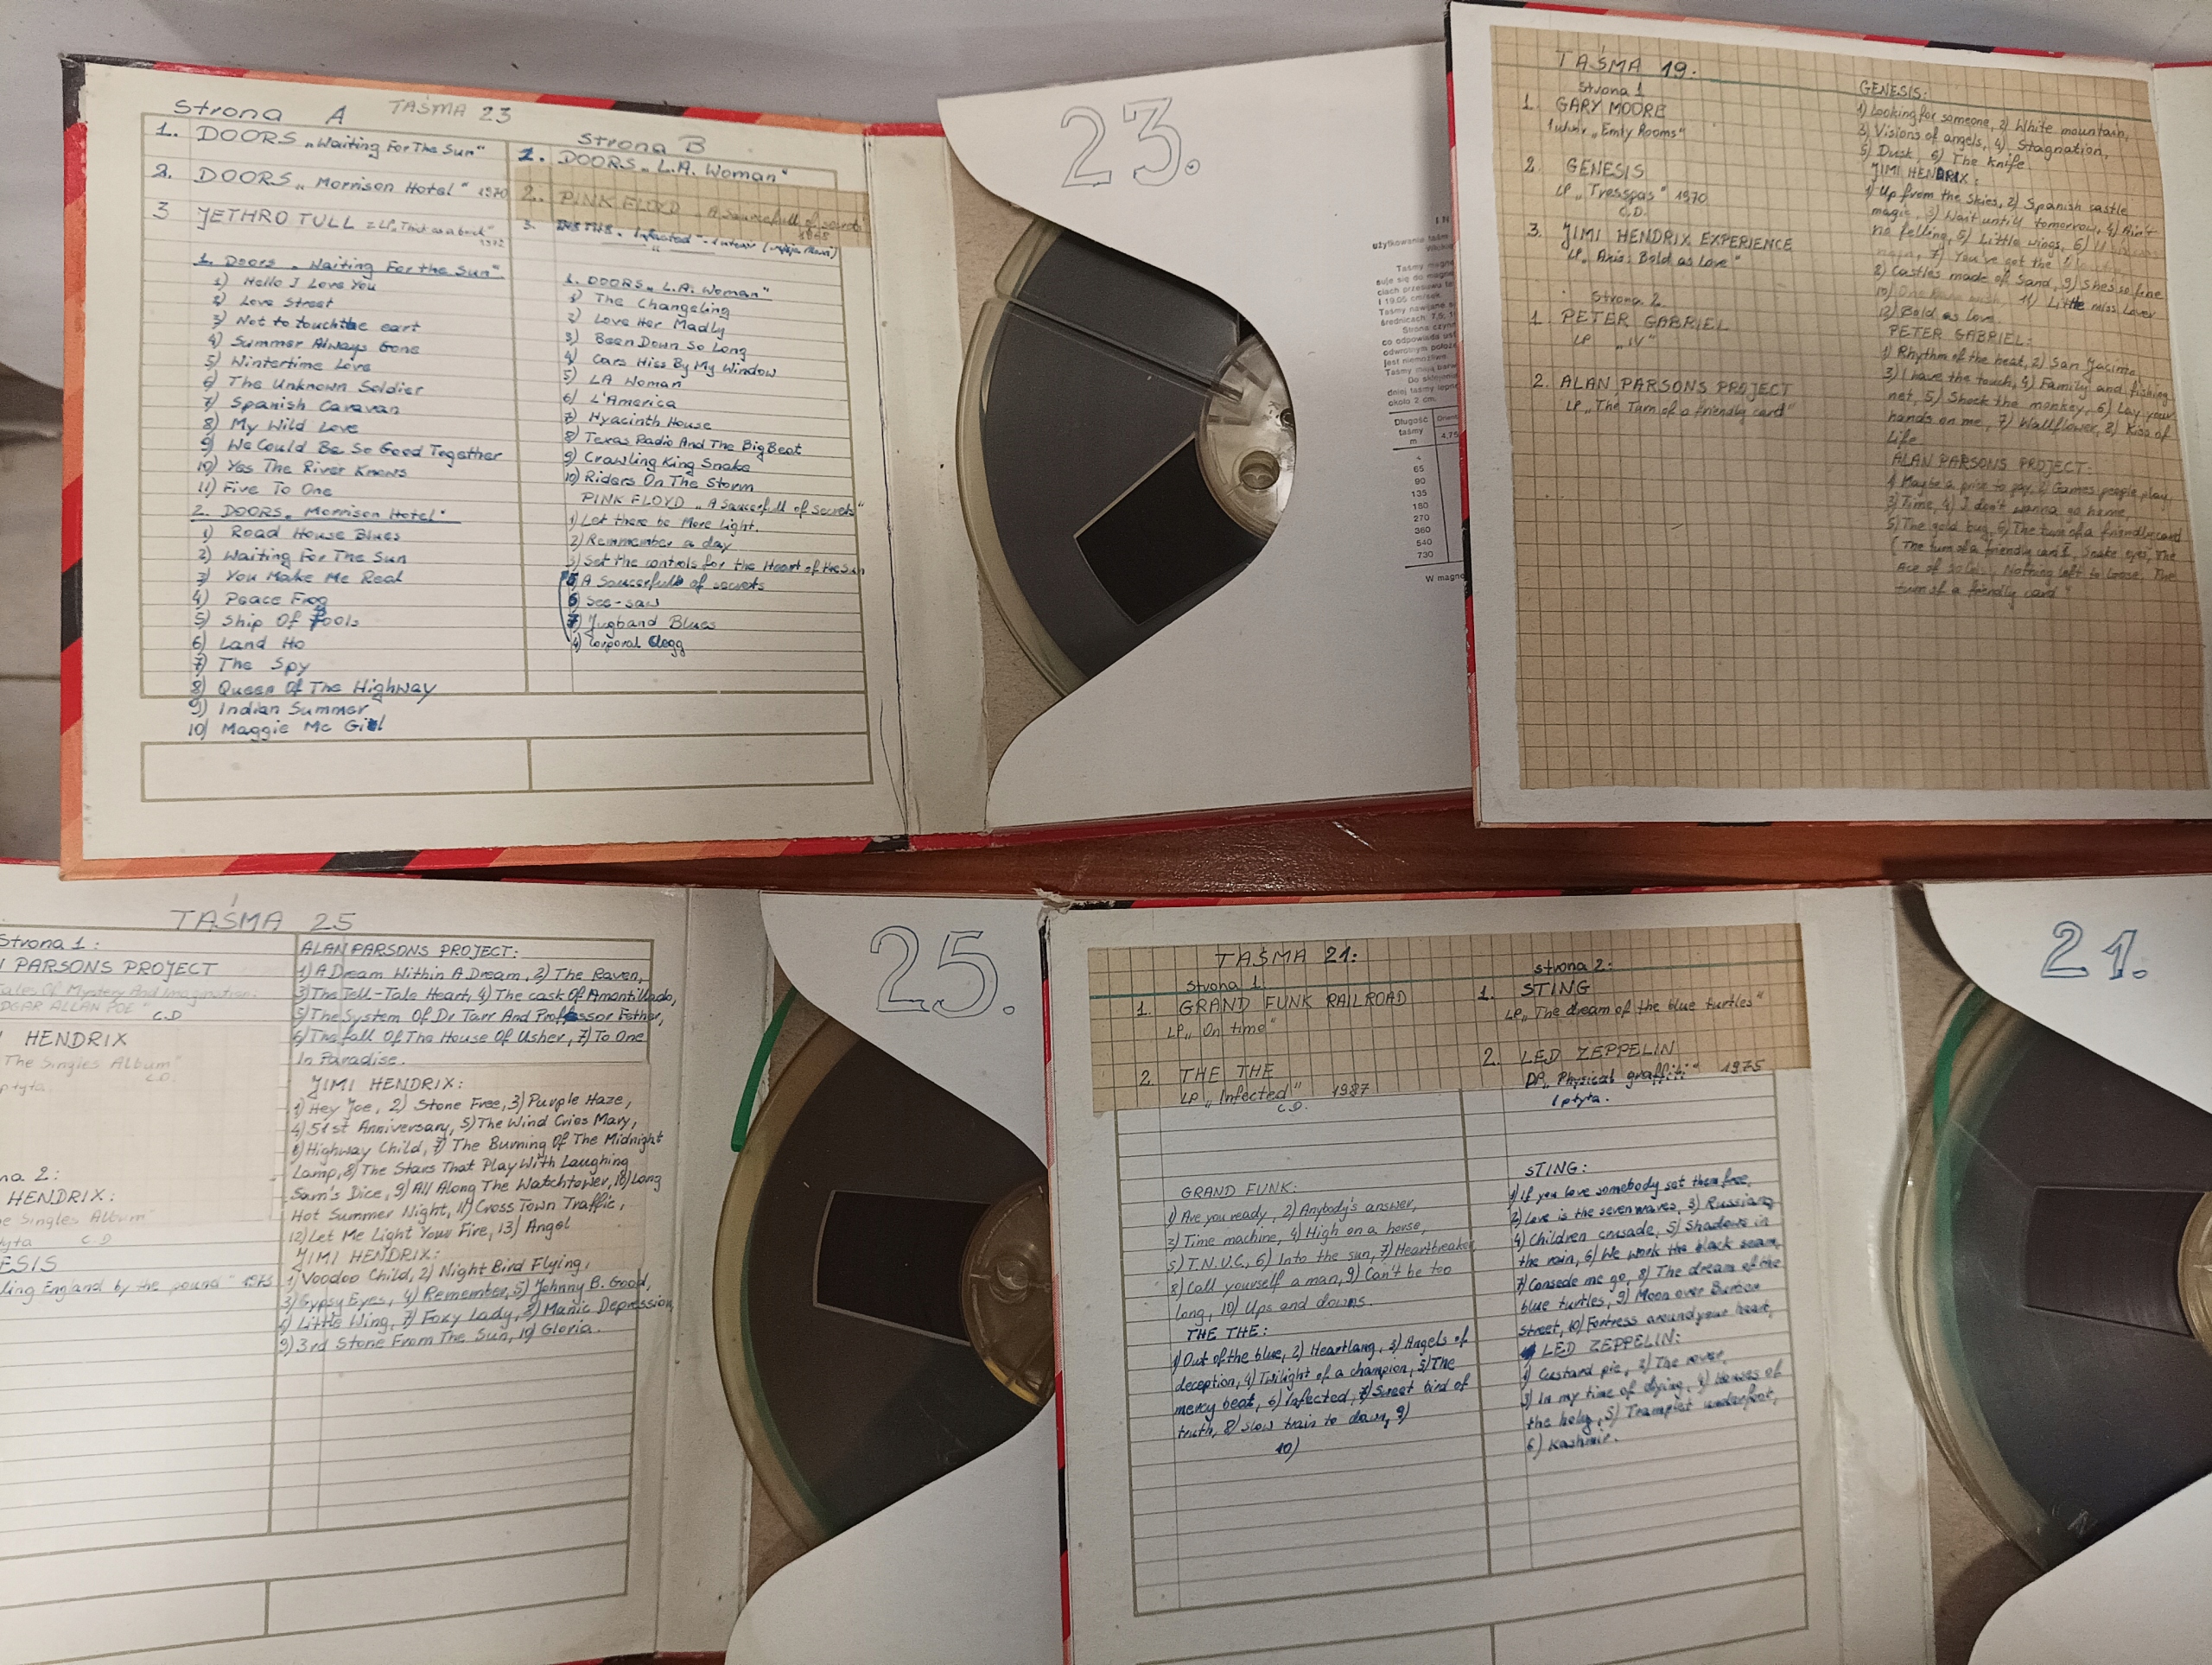 TAŚMA 23
Strona A
1. DOORS „Waiting For The Sun"
2. DOORS „Morrison Hotel" 1970
3 JETHRO TULL = LP „Thick as a brick"
1972
1. Doors „Waiting For the Sun"
1) Hello I Love You
2) Love Street
3) Not to touch the eart
4) Summer Always Gone
5) Wintertime Love
6) The Unknown Soldier
7) Spanish Caravan
8) My Wild Love
9) We Could Be So Good Together
10) Yes The River Knows
11) Five To One
2. DOORS „Morrison Hotel"
1) Road House Blues
2) Waiting For The Sun
3) You Make Me Real
4) Peace Frog
5) Ship Of Fools
6) Land Ho
7) The Spy
8) Queen Of The Highway
9) Indian Summer
10) Maggie Mc Gill
Strona B
1. DOORS „L.A. Woman"
2. PINK FLOYD „A Saucerfull of secrets
3. „Infected"
1. DOORS „L.A. Woman"
1) The Changeling
2) Love Her Madly
3) Been Down So Long
4) Cars Hiss By My Window
5) LA Woman
6) L'America
7) Hyacinth House
8) Texas Radio And The Big Beat
9) Crawling King Snake
10) Riders On The Storm
PINK FLOYD „A Saucerfull of secrets"
1) Let there be More Light.
2) Remmember a day
3) Set the controls for the Heart of the Sun
5) A Saucerfull of secrets
6) See-saw
7) Jugband Blues
4) Corporal Clegg
23.
użytkowania taśm
Długość
taśmy
m
4,75
65
90
135
180
270
360
540
730
W magne
TAŚMA 19.
Strona 1
1. GARY MOORE
„Emty Rooms"
2. GENESIS
LP „Tresspas" 1970
C.D.
3. JIMI HENDRIX EXPERIENCE
LP „Axis: Bold as Love"
Strona 2.
1. PETER GABRIEL
LP „IV"
2. ALAN PARSONS PROJECT
LP „The Turn of a friendly card"
GENESIS:
1) Looking for someone, 2) White mountain,
3) Visions of angels, 4) Stagnation,
5) Dusk, 6) The knife
JIMI HENDRIX:
1) Up from the skies, 2) Spanish castle
magic, 3) Wait until tomorrow, 4) Ain't
no felling, 5) Little wings, 6)
7) You've got the
8) Castles made of Sand, 9) She's so fine
10) 11) Little miss Lover
12) Bold as love
PETER GABRIEL:
1) Rhythm of the heat, 2) San Jacinto
3) I have the touch, 4) Family and fishing
net, 5) Shock the monkey, 6) Lay your
hands on me, 7) Wallflower, 8) Kiss of
Life
ALAN PARSONS PROJECT:
1) Maybe a price to pay, 2) Games people play,
3) Time, 4) I don't wanna go home,
5) The gold bug, 6) The turn of a friendly card
( The turn of a friendly card I, Snake eyes, The
Ace of Nothing left to loose, The
turn of a friendly card"
TAŚMA 25
Strona 1:
PARSONS PROJECT
Tales Of Mystery And Imagination.
DGAR ALLAN POE"
C.D
HENDRIX
The Singles Album"
C.D.
płyta
na 2:
HENDRIX:
e Singles Album"
łyta C.D
ESIS
ling England by the pound" 1973
ALAN PARSONS PROJECT:
1) A Dream Within A Dream, 2) The Raven,
3) The Tell-Tale Heart, 4) The cask Of Amontillado,
5) The System Of Dr Tarr And Professor Fether,
6) The fall Of The House Of Usher, 7) To One
In Paradise.
JIMI HENDRIX:
1) Hey Joe, 2) Stone Free, 3) Purple Haze,
4) 51st Anniversary, 5) The Wind Cries Mary,
6) Highway Child, 7) The Burning Of The Midnight
Lamp, 8) The Stars That Play With Laughing
Sam's Dice, 9) All Along The Watchtower, 10) Long
Hot Summer Night, 11) Cross Town Traffic,
12) Let Me Light Your Fire, 13) Angel
JIMI HENDRIX:
1) Voodoo Child, 2) Night Bird Flying,
3) Gypsy Eyes, 4) Remember, 5) Johnny B. Good,
6) Little Wing, 7) Foxy Lady, 8) Manic Depression,
9) 3rd Stone From The Sun, 10) Gloria.
25.
TAŚMA 21:
strona 1.
1. GRAND FUNK RAILROAD
LP „On time"
2. THE THE
LP „Infected" 1987
C.D.
strona 2:
1. STING
LP „The dream of the blue turtles"
2. LED ZEPPELIN
DP „Physical graffiti" 1975
1 płyta.
GRAND FUNK:
1) Are you ready, 2) Anybody's answer,
3) Time machine, 4) High on a horse,
5) T.N.U.C, 6) Into the sun, 7) Heartbreaker
8) Call yourself a man, 9) Can't be too
long, 10) Ups and downs.
THE THE:
1) Out of the blue, 2) Heartlang, 3) Angels of
deception, 4) Twilight of a champion, 5) The
mercy beat, 6) Infected, 7) Sweet bird of
truth, 8) Slow train to dawn, 9)
10)
STING:
1) If you love somebody set them free,
2) Love is the seven waves, 3) Russians
4) Children crusade, 5) Shadows in
the rain, 6) We work the black seam,
7) Consede me go, 8) The dream of the
blue turtles, 9) Moon over Burbon
street, 10) Fortress around your heart,
LED ZEPPELIN:
1) Custard pie, 2) The rover,
3) In my time of dying, 4) Houses of
the holy, 5) Tramplet underfoot,
6) Kashmir.
21.